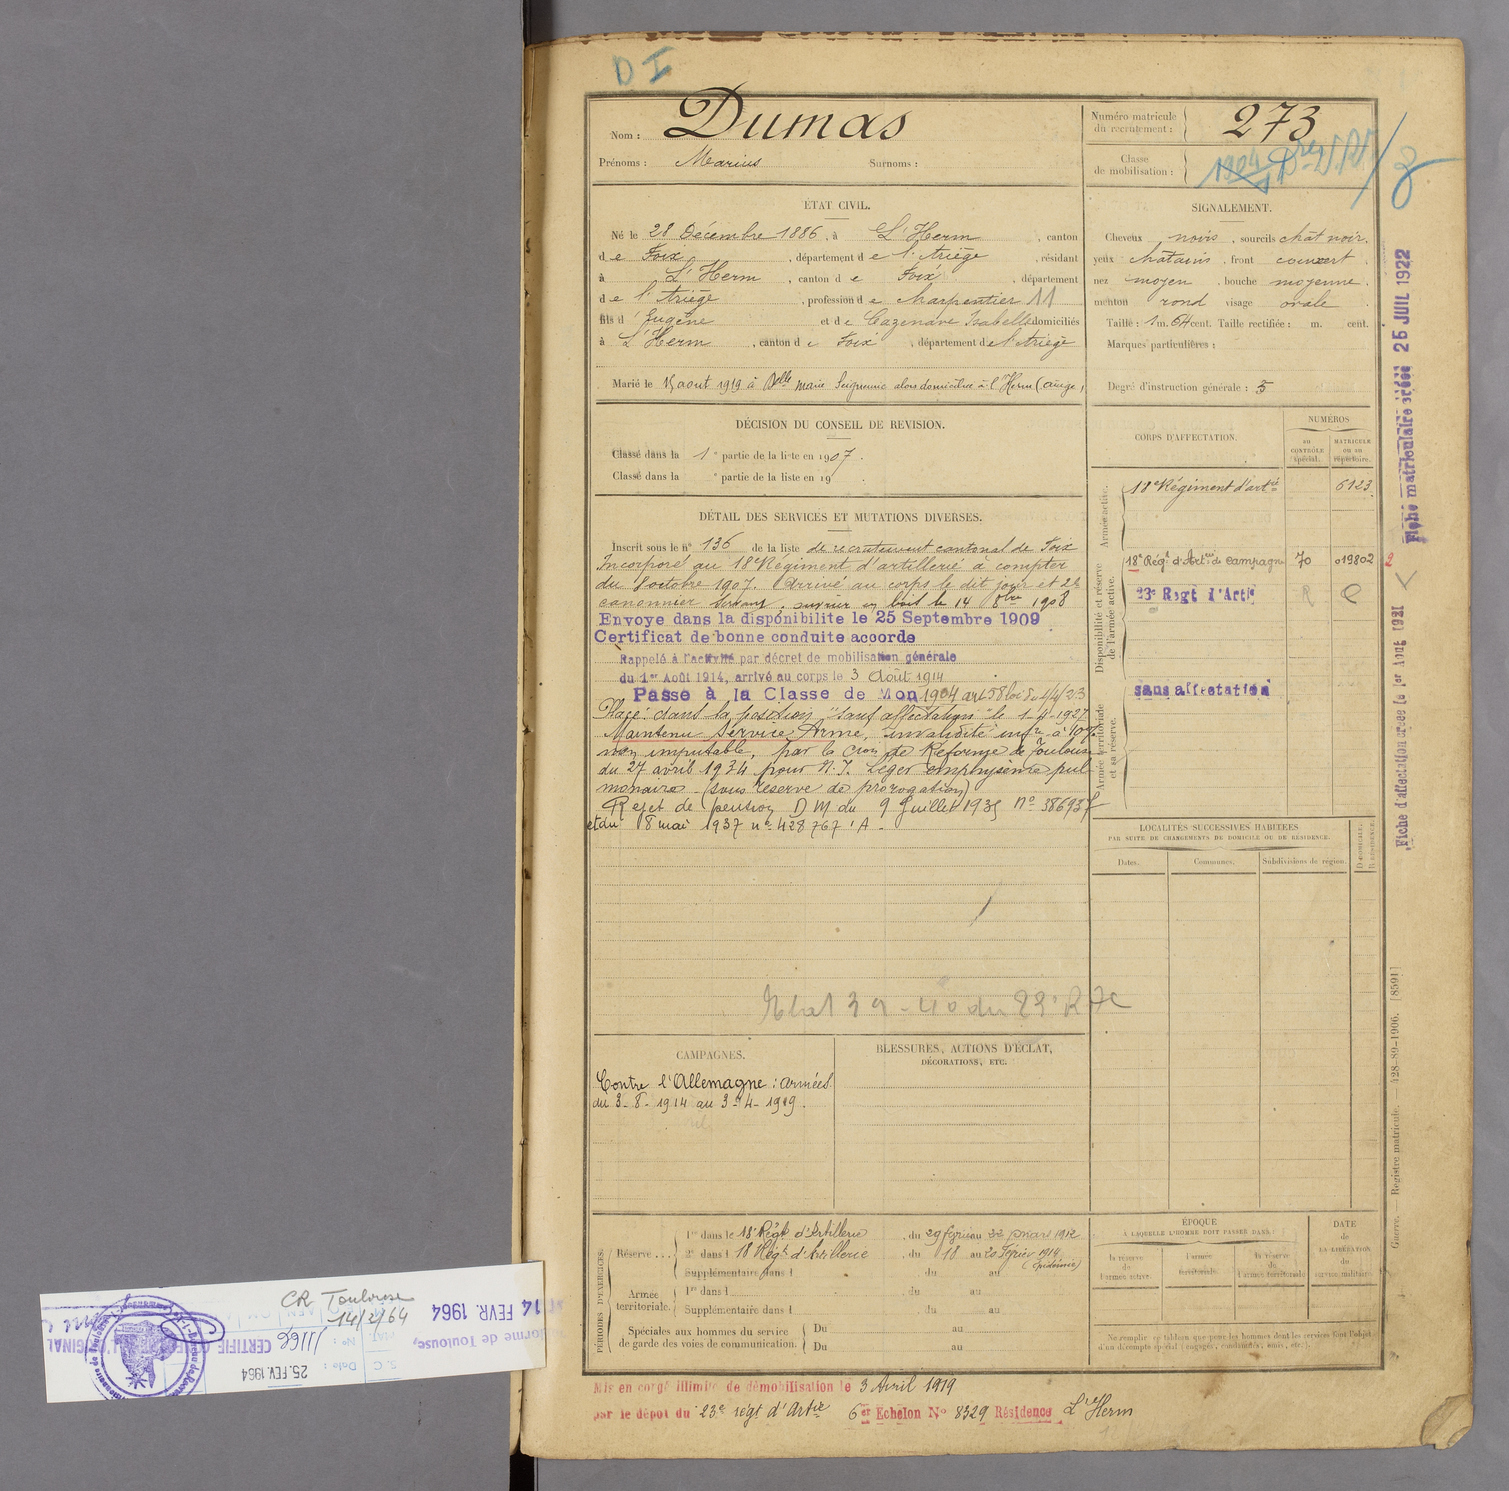 D I
Nom : Dumas
Prénoms : Marius Surnoms :
Numéro matricule du recrutement : 273
Classe de mobilisation : 1904
ÉTAT CIVIL.
Né le 28 Décembre 1886, à L'Herm, canton
de Foix, département de l'Ariège, résidant
à L'Herm, canton de Foix, département
de l'Ariège, profession de Charpentier 11
fils d'Eugène et de Cazenave Isabelle domiciliés
à L'Herm, canton de Foix, département de l'Ariège
Marié le 15 aout 1919 à Delle Marie alors domiciliée à l'Herm (Ariège)
SIGNALEMENT.
Cheveux noirs, sourcils chât noir.
yeux châtains, front couvert.
nez moyen, bouche moyenne.
menton rond visage ovale
Taille : 1 m. 64 cent. Taille rectifiée : m. cent.
Marques particulières :
Degré d'instruction générale : 3
DÉCISION DU CONSEIL DE REVISION.
Classé dans la 1e partie de la liste en 1907.
Classé dans la e partie de la liste en 19 .
DÉTAIL DES SERVICES ET MUTATIONS DIVERSES.
Inscrit sous le n° 136 de la liste de recrutement cantonal de Foix
Incorporé au 18e Régiment d'artillerie à compter
du 8 octobre 1907. Arrivé au corps le dit jour et 2e
canonnier servant, ouvrier en bois le 14 8bre 1908
Envoye dans la disponibilite le 25 Septembre 1909
Certificat de bonne conduite accorde
Rappelé à l'activité par décret de mobilisation générale
du 1er Août 1914, arrivé au corps le 3 Août 1914
Passe à la Classe de Mon 1904 art 58 loi du 1/4/23
Placé dans la position "sans affectation" le 1-4-1927
Maintenu Service Armé, invalidité infre à 10%
non imputable, par la Cion de Réforme de Toulouse
du 27 avril 1934 pour N.I. Léger emphysème pul-
monaire (sous réserve de prorogation)
Rejet de pension DM du 9 Juillet 1935 N° 386937
et du 8 mai 1937 n° 428767 'A -
39-40 du 23e R A C
CORPS D'AFFECTATION.
NUMÉROS
AU CONTRÔLE spécial.
MATRICULE OU AU répertoire.
Armée active.
18e Régiment d'artie 6123
Disponibilité et réserve de l'armée active.
18e Régt d'Artie de Campagne 70 019802 2
23e Regt d'Artie R
Armée territoriale et sa réserve.
sans affectation
LOCALITÉS SUCCESSIVES HABITÉES
PAR SUITE DE CHANGEMENTS DE DOMICILE OU DE RÉSIDENCE.
Dates. Communes. Subdivisions de région. D. DOMICILE. R. RÉSIDENCE.
CAMPAGNES.
Contre l'Allemagne : armées
du 3-8-1914 au 3-4-1919.
BLESSURES, ACTIONS D'ÉCLAT,
DÉCORATIONS, ETC.
PÉRIODES D'EXERCICES.
Réserve ... 1re dans le 18e Régt d'Artillerie, du 29 février au 22 mars 1912
2e dans l 18 Régt d'Artillerie, du 18 au 20 Février 1914
(Epidémie)
Supplémentaire dans l du au
Armée territoriale. 1re dans l , du au
Supplémentaire dans l , du au
Spéciales aux hommes du service de garde des voies de communication. Du au
Du au
ÉPOQUE
À LAQUELLE L'HOMME DOIT PASSER DANS :
la réserve de l'armée active.
l'armée territoriale.
la réserve de l'armée territoriale.
DATE de LA LIBÉRATION du service militaire.
Ne remplir ce tableau que pour les hommes dont les services font l'objet
d'un décompte spécial (engagés, condamnés, omis, etc.).
Mis en congé illimité de démobilisation le 3 Avril 1919
par le dépot du 23e régt d'Artie 6er Echelon N° 8329 Résidence L'Herm
Fiche matriculaire créée 25 JUIL 1922
Fiche d'affectation créée le 1er Aout 1921
Guerre. — Registre matricule. — 428-89-1906. [8591]
CR Toulouse
14/2/64
14 FEVR. 1964
Réforme de Toulouse,
CERTIFIÉ ORIGINAL
N° : 11169
Date : 25.FEV.1964
S. C